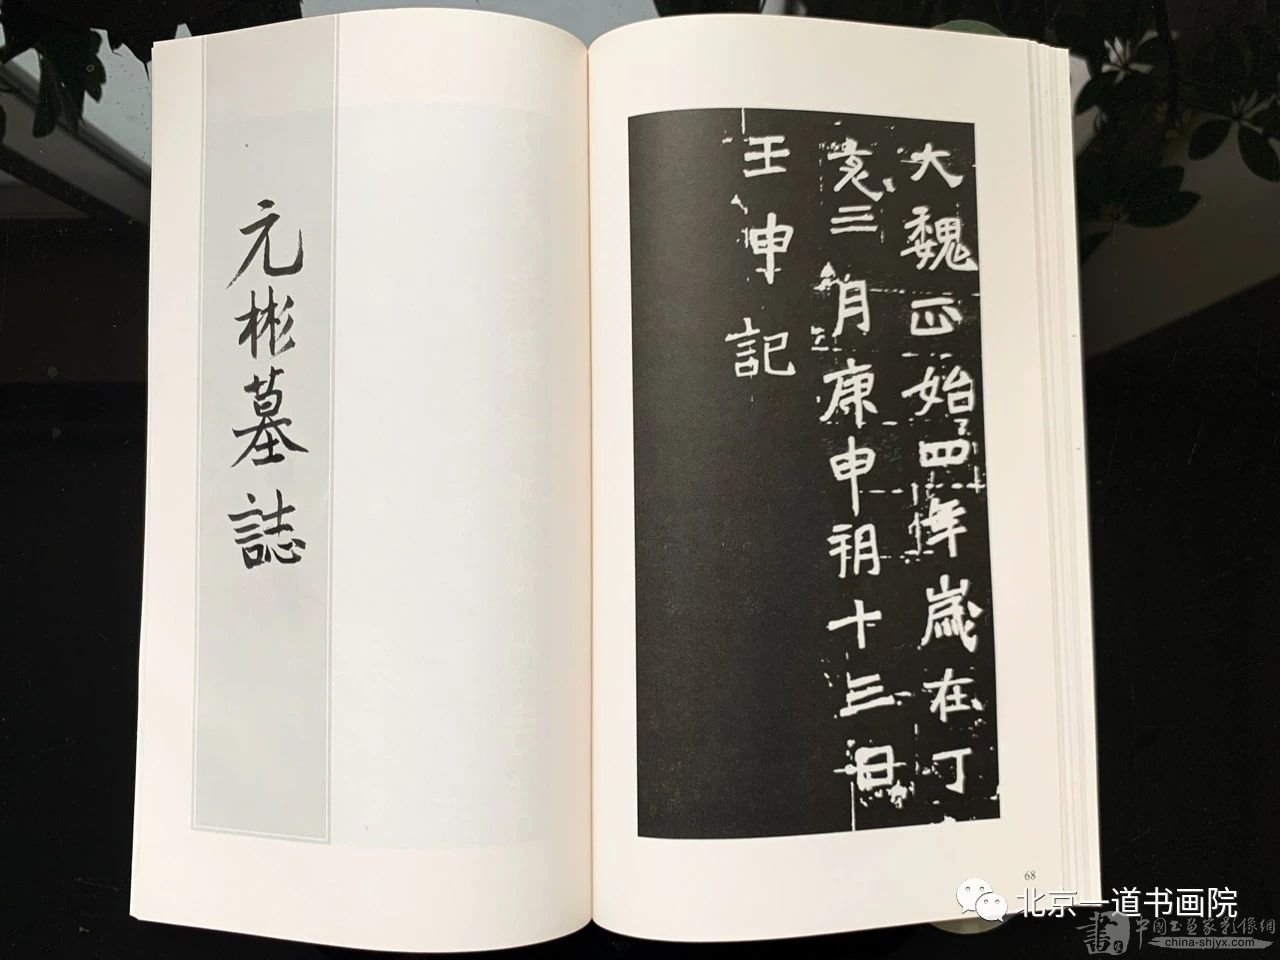 大魏正始四年歲在丁
亥三月庚申朔十三日
壬申記
元彬墓誌
68
北京一道书画院
中国书画家影像網
china-shjyx.com